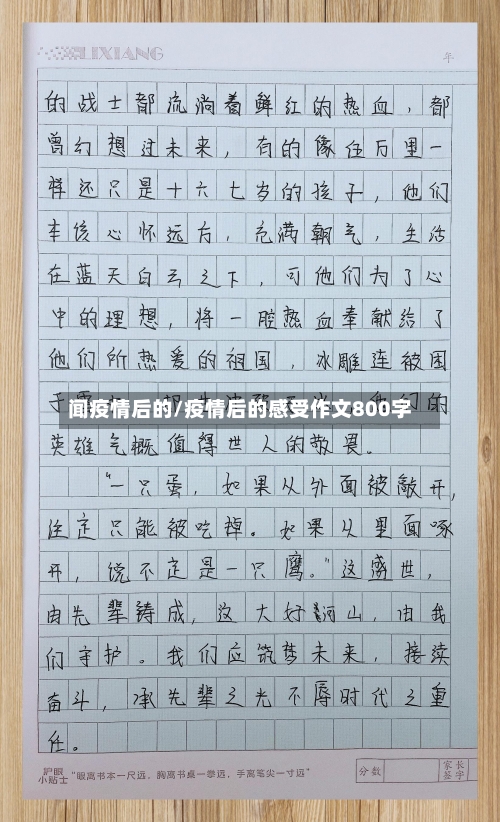 LIXIANG
年
的战士都流淌着鲜红的热血，都
曾幻想过未来，有的像伍万里一
样还只是十六七岁的孩子，他们
本该心怀远方，充满朝气，生活
在蓝天白云之下，可他们为了心
中的理想，将一腔热血奉献给了
他们所热爱的祖国，冰雕连被困
于
闻疫情后的/疫情后的感受作文800字
们的
英雄气概值得世人的敬畏。
“一只蛋，如果从外面被敲开，
注定只能被吃掉。如果从里面啄
开，说不定是一只鹰。”这盛世，
由先辈铸成，这大好河山，由我
们守护。我们应筑梦未来，接续
奋斗，承先辈之光不辱时代之重
任。
护眼小贴士
“眼离书本一尺远，胸离书桌一拳远，手离笔尖一寸远”
分数
家长签字